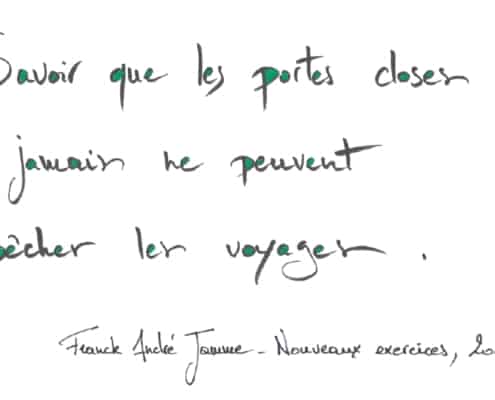 Savoir que les portes closes
jamais ne peuvent
pêcher les voyages.
Franck André Jamme - Nouveaux exercices, 20